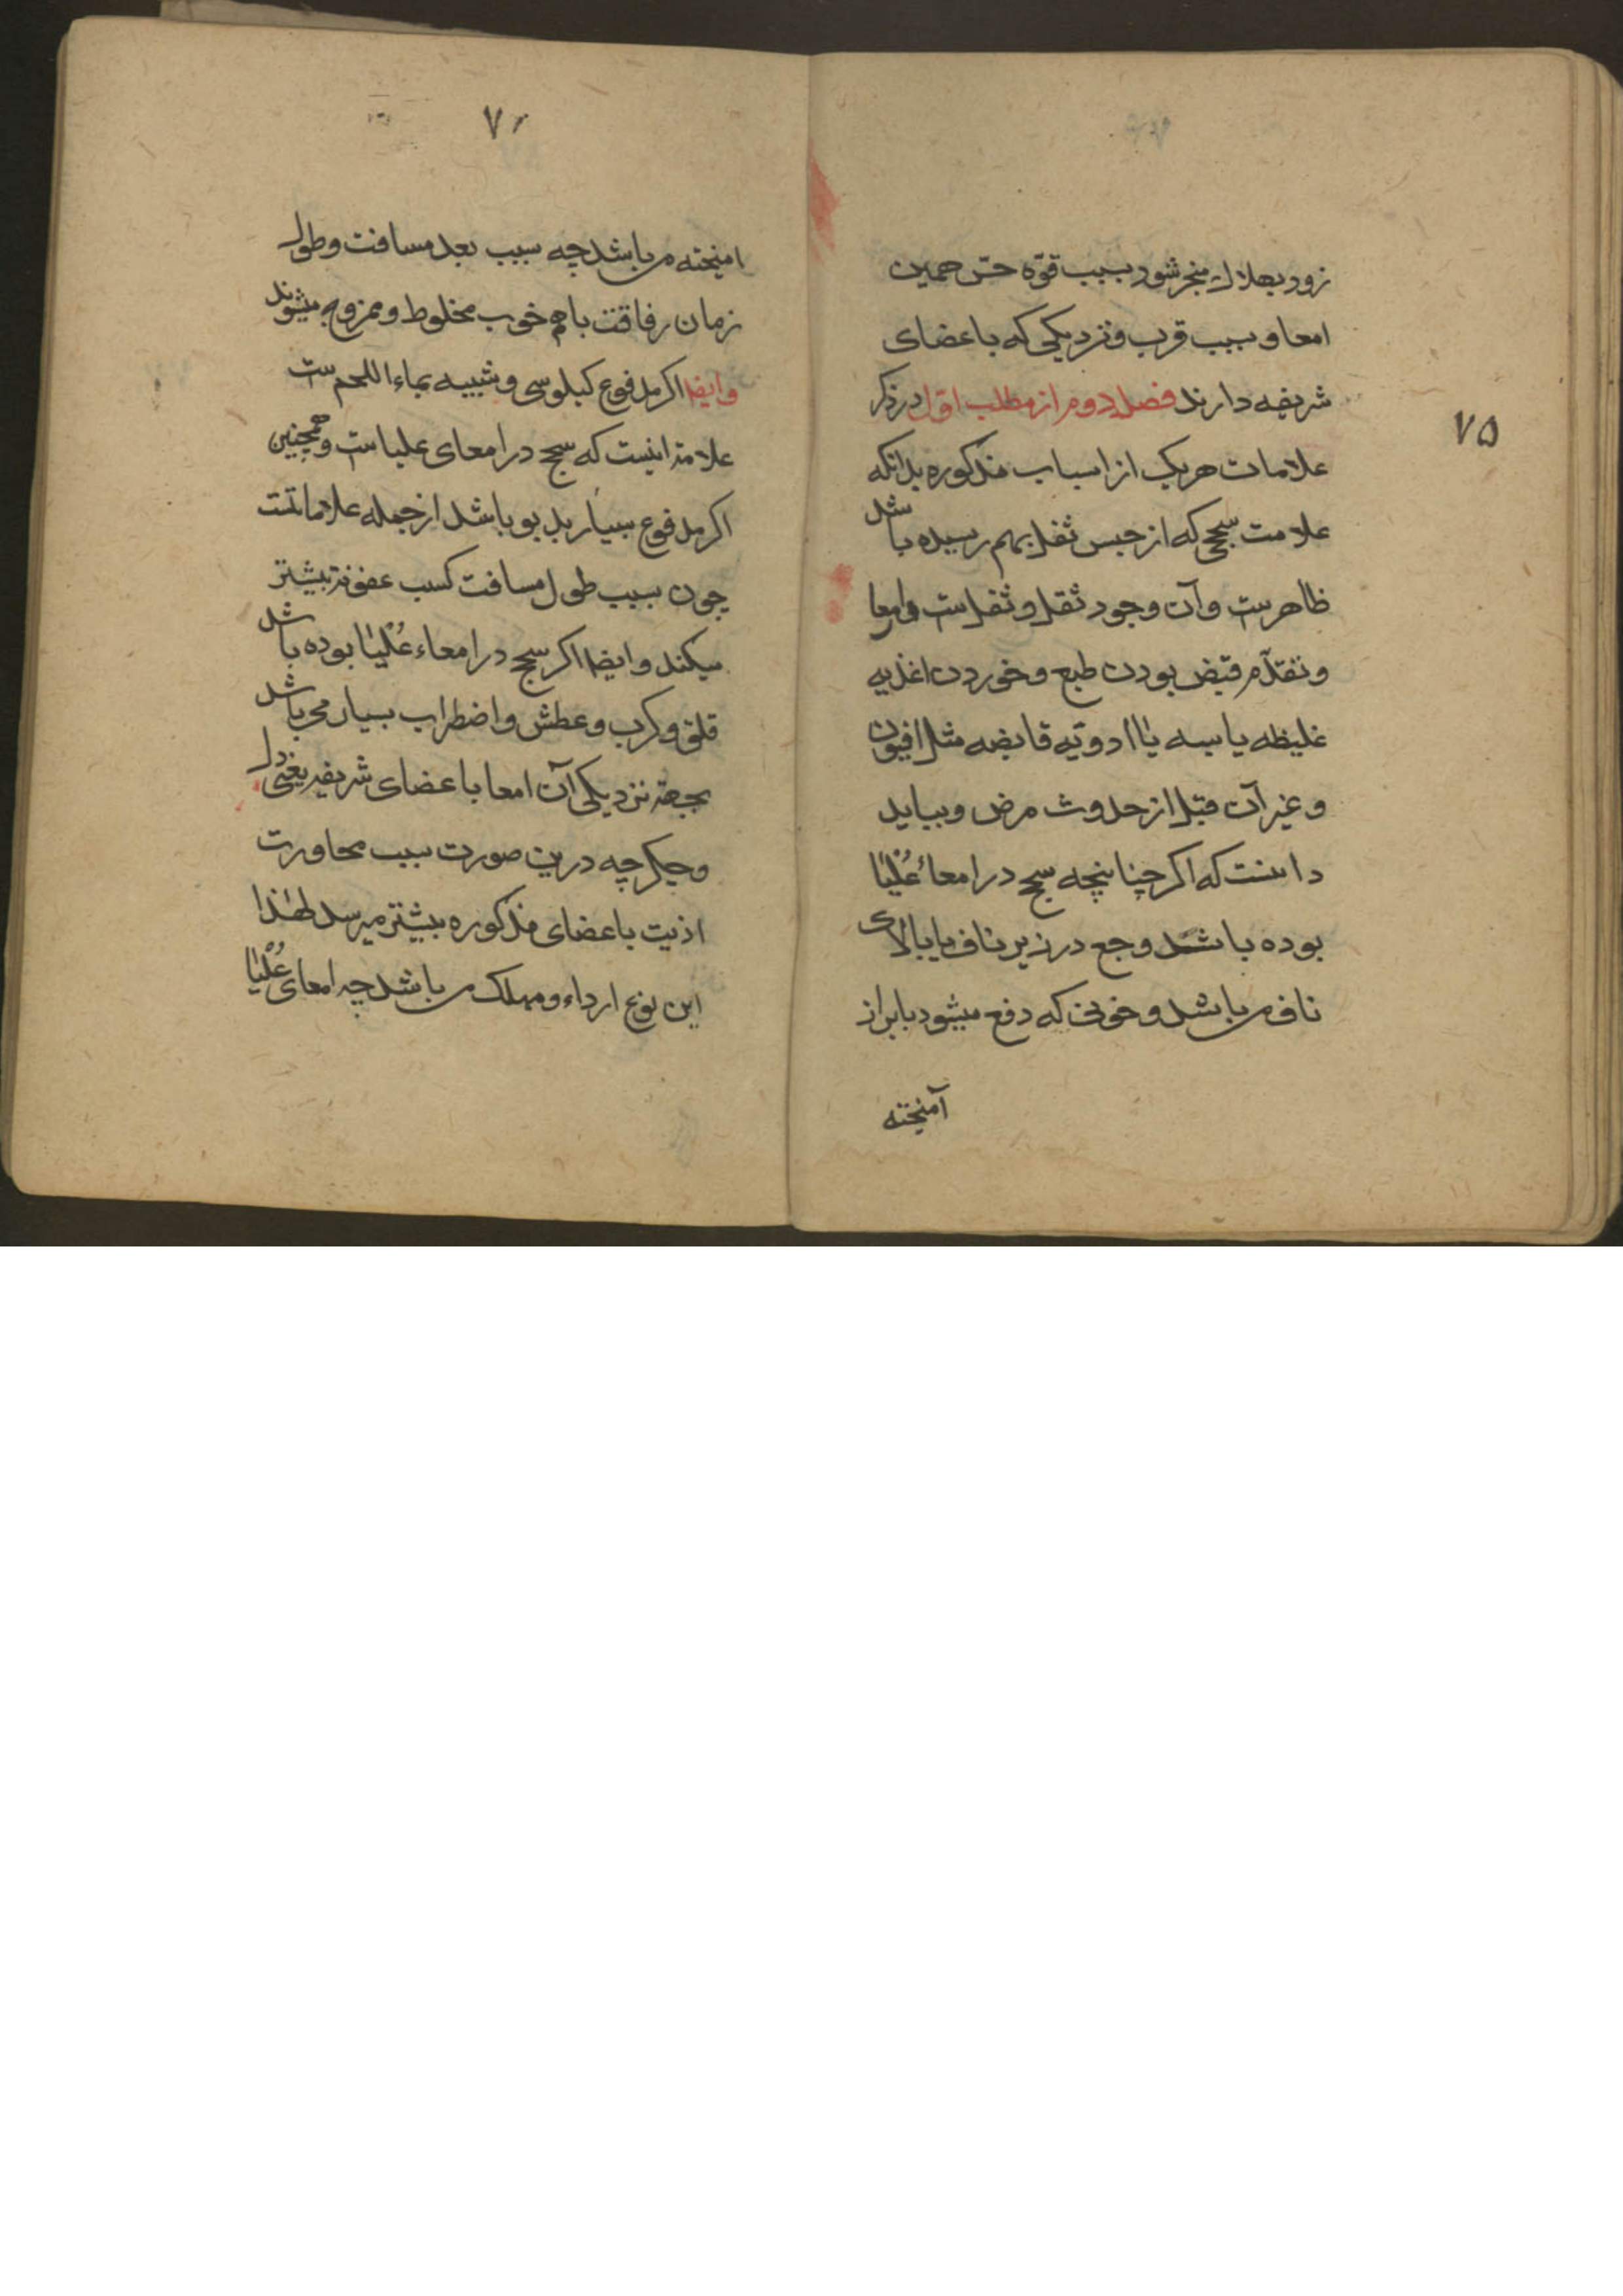 ۷۵
زود بهلاك منجر شود بسبب قوّه حسّ همین
امعا و بسبب قرب و نزدیکی که باعضای
شریفه دارند فصل دوم از مطلب اوّل در ذکر
علامات هریک از اسباب مذکوره بدانکه
علامت سحج که از حبس ثفل بهم رسیده باشد
ظاهرست و آن وجود ثقل و ثفل است در امعا
و تقدّم قبض بودن طبع و خوردن اغذیه
غلیظه یابسه یا ادویّه قابضه مثل افیون
و غیر آن قبل از حدوث مرض و بباید
دانست که اکر چنانچه سحج در امعائ عُلْیٰا
بوده باشد وجع در زیر ناف یا بالای
ناف می باشد و خونی که دفع میشود بابراز
آمیخته
۷۶
امیخته می باشد چه سبب بعد مسافت و طول
زمان رفاقت باهم خوب مخلوط و ممزوج میشوند
وایضا اکر مدفوع کیلوسی و شبیه بماء اللحم ست
علامة اینست که سحج در امعای علیاست و همچنین
اکر مدفوع بسیار بد بو باشد از جمله علاماتست
چون بسبب طول مسافت کسب عفونة بیشتر
میکند وایضا اکر سحج در امعاء عُلْیٰا بوده باشد
قلق و کرب و عطش و اضطراب بسیار می باشد
بجهة نزدیکی آن امعا باعضای شریفه یعنی دل
و جکر چه درین صورت بسبب مجاورت
اذیت باعضای مذکوره بیشتر میرسد لهٰذا
این نوع ارداء و مهلک می باشد چه امعای عُلْیٰا